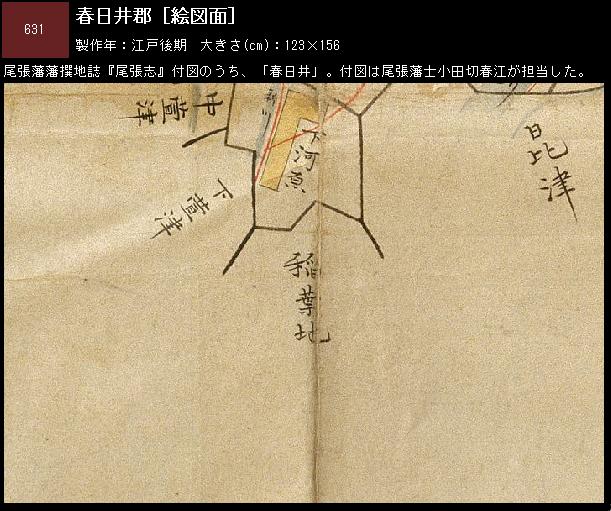 631
春日井郡 [絵図面]
製作年：江戸後期　大きさ(cm)：123×156
尾張藩藩撰地誌『尾張志』付図のうち、「春日井」。付図は尾張藩士小田切春江が担当した。
中萱津
新川
下河原
下萱津
稲葉地
昆津